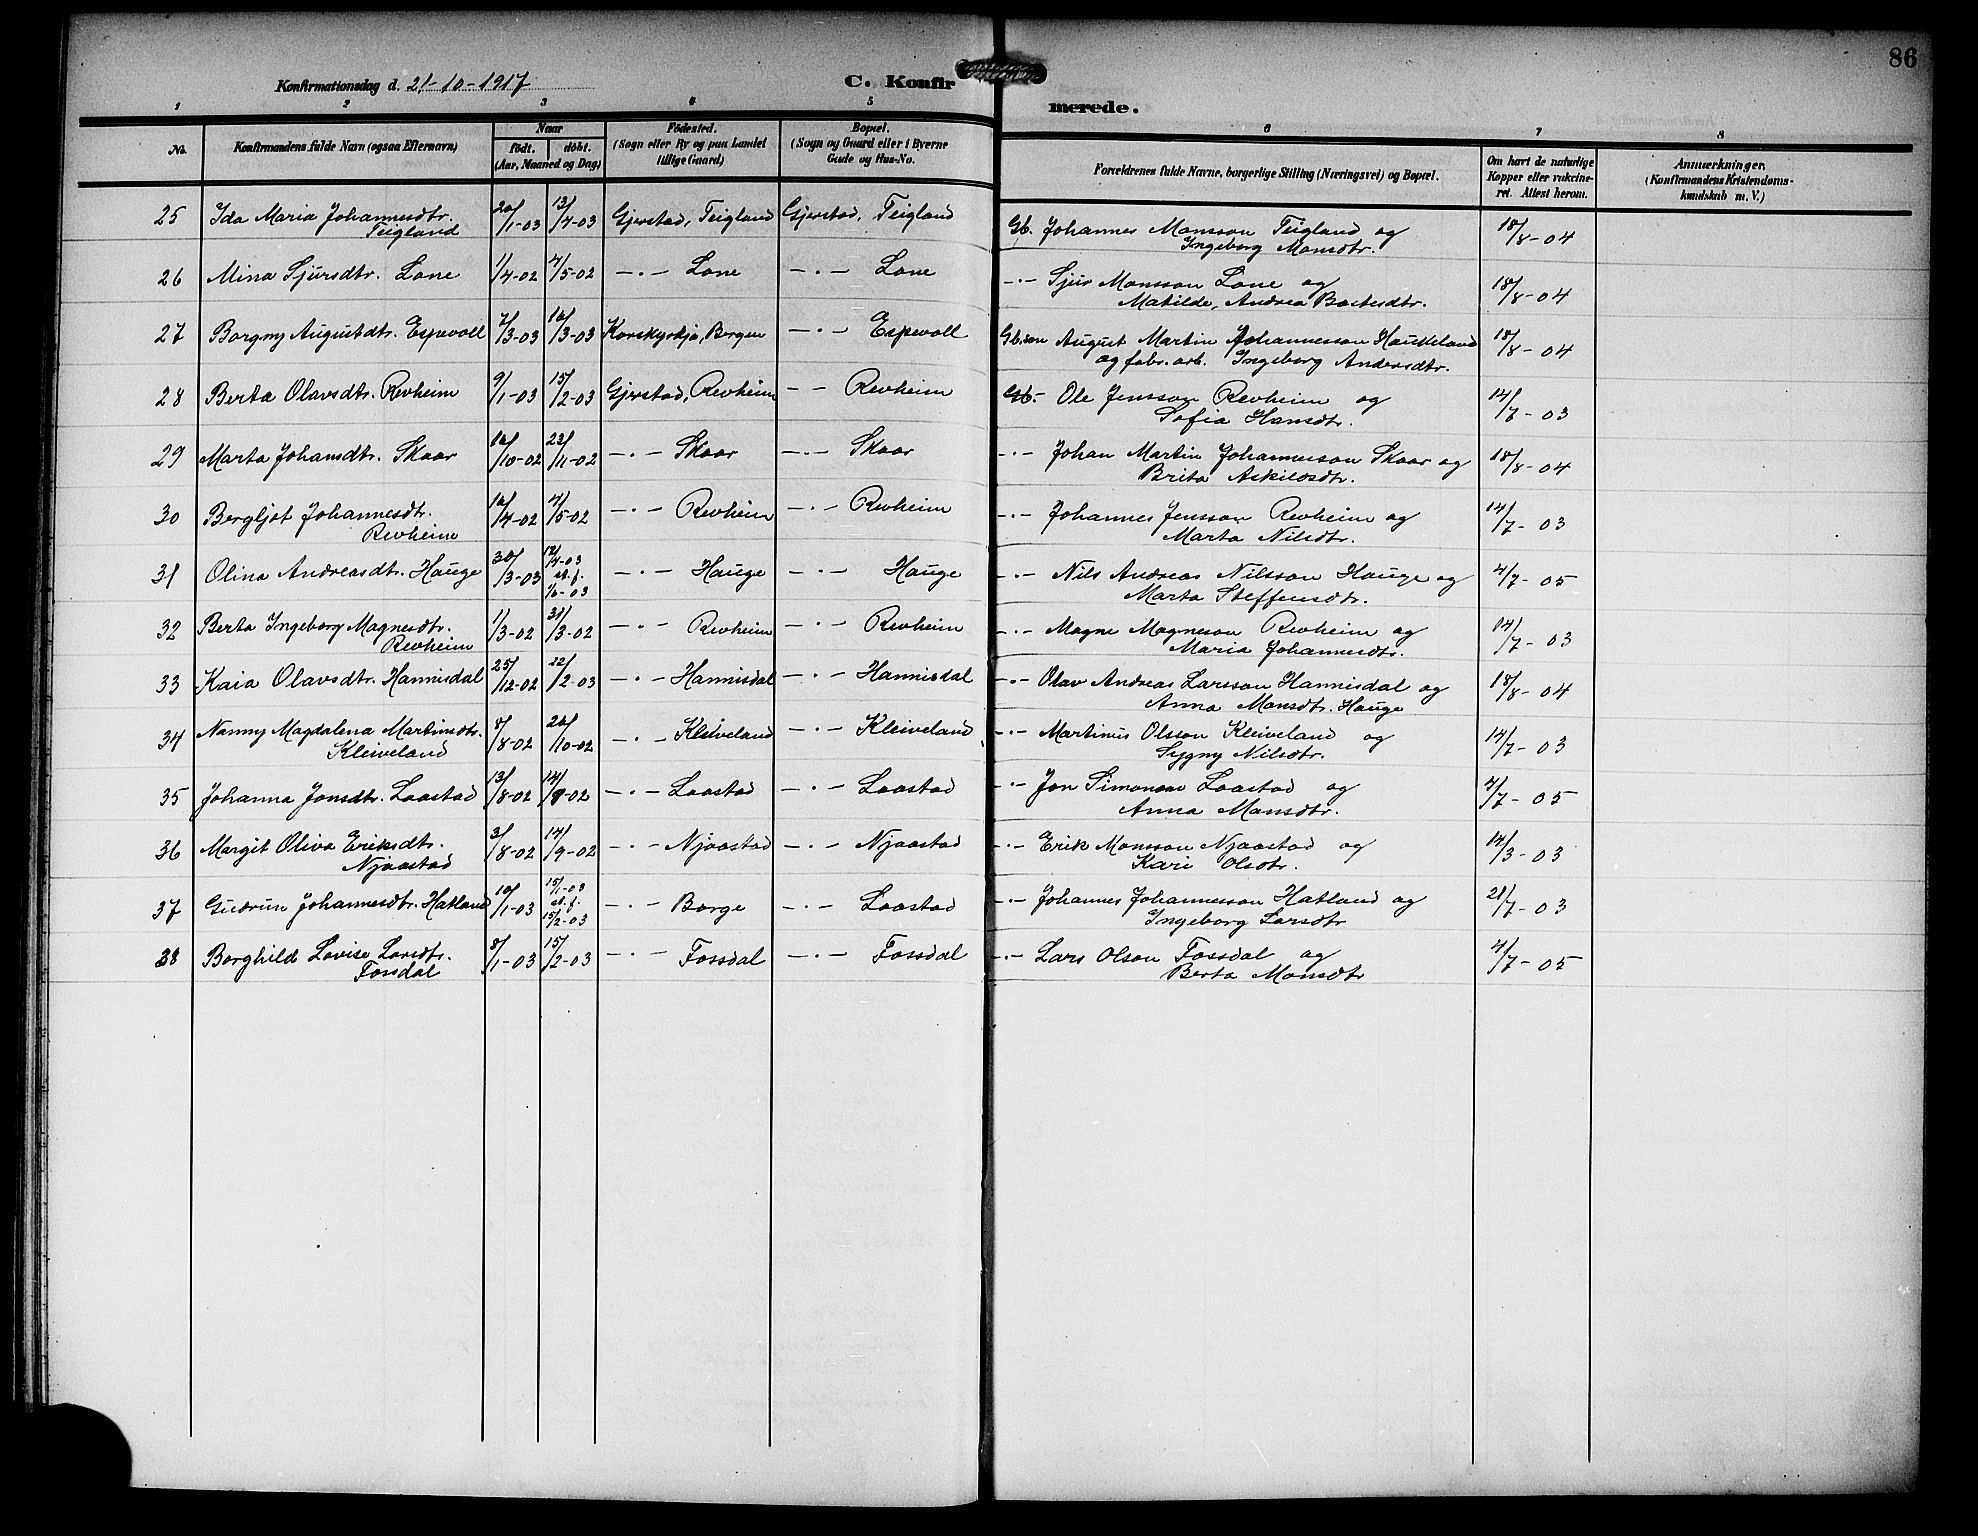 86
Konfirmationsdag d. 21-10-1917
C. Konfir
merede.
1 2 3 4 5 6 7 8
No. Konfirmandens fulde Navn (ogsaa Efternavn) Naar födt. döbt. (Aar, Maaned og Dag) Födested. (Sogn eller By og paa Landet tillige Gaard) Bopæl. (Sogn og Gaard eller i Byerne Gade og Hus-No. Forældrenes fulde Navne, borgerlige Stilling (Næringsvei) og Bopæl. Om havt de naturlige Kopper eller vakcineret. Attest herom. Anmærkninger. (Konfirmandens Kristendomskundskab m. V.)
25 Ida Maria Johannesdtr. 20/1-03 13/4-03 Gjerstad, Teigland Gjerstad, Teigland Gb. Johannes Monsson Teigland og 18/8-04
Teigland Ingeborg Monsdtr.
26 Mina Sjursdtr. Lone 1/4-02 4/5-02 -·- Lone -·- Lone -·- Sjur Monsson Lone og 18/8-04
Matilde, Andrea Baltesdtr.
27 Borgny Augustdtr. Espevoll 7/3-03 16/3-03 Korskyrkja, Bergen -·- Espevoll Gb.søn August Martin Johannesson Haukeland 18/8-04
og fabr. arb. Ingeborg Andersdtr.
28 Berta Olavsdtr. Revheim 9/1-03 15/2-03 Gjerstad, Revheim - - Revheim Gb- Ole Jensson Revheim og 14/7-03
Sofia Hansdtr.
29 Marta Johansdtr. Skaar 16/10-02 23/11-02 -·- Skaar -·- Skaar -·- Johan Martin Johannesson Skaar og 18/8-04
Brita Askilosdtr.
30 Bergljot Johannesdtr. 16/4-02 4/5-02 -·- Revheim -·- Revheim -·- Johannes Jensson Revheim og 14/7-03
Revheim Marta Nilsdtr.
31 Olina Andreasdtr. Hauge 30/3-03 12/4-03 st.f. 1/6-03 -·- Hauge -·- Hauge -·- Nils Andreas Nilsson Hauge og 4/7-05
Marta Steffensdtr.
32 Berta Ingeborg Magnesdtr. 1/3-02 31/3-02 -·- Revheim -·- Revheim -·- Magne Magneson Revheim og 14/7-03
Revheim Maria Johannesdtr.
33 Kaia Olavsdtr. Hannisdal 25/12-02 22/2-03 -·- Hannisdal -·- Hannisdal -·- Olav Andreas Larsson Hannisdal og 18/8-04
Anna Monsdtr. Hauge
34 Nanny Magdalena Martinsdtr. 8/8-02 26/10-02 -·- Kleiveland -·- Kleiveland -·- Martinus Olsson Kleiveland og 14/7-03
Kleiveland Sygny Nilsdtr.
35 Johanna Jonsdtr. Laastad 13/8-02 14/9-02 -·- Laastad -·- Laastad -·- Jon Simonsen Laastad og 4/7-05
Anna Monsdtr.
36 Margit Oliva Eriksdtr. 3/8-02 14/9-02 -·- Njaastad -·- Njaastad -·- Erik Monsson Njaastad og 14/3-03
Njaastad Kari Olsdtr.
37 Gudrun Johannesdtr. Hatland 10/1-03 15/1-03 st.f. 15/2-03 -·- Borge -·- Laastad -·- Johannes Johannesson Hatland og 21/7-03
Ingeborg Larsdtr
38 Borghild Lovise Larsdtr. 8/1-03 15/2-03 -·- Fossdal -·- Fossdal -·- Lars Olson Fossdal og 4/7-05
Fossdal Berta Monsdtr